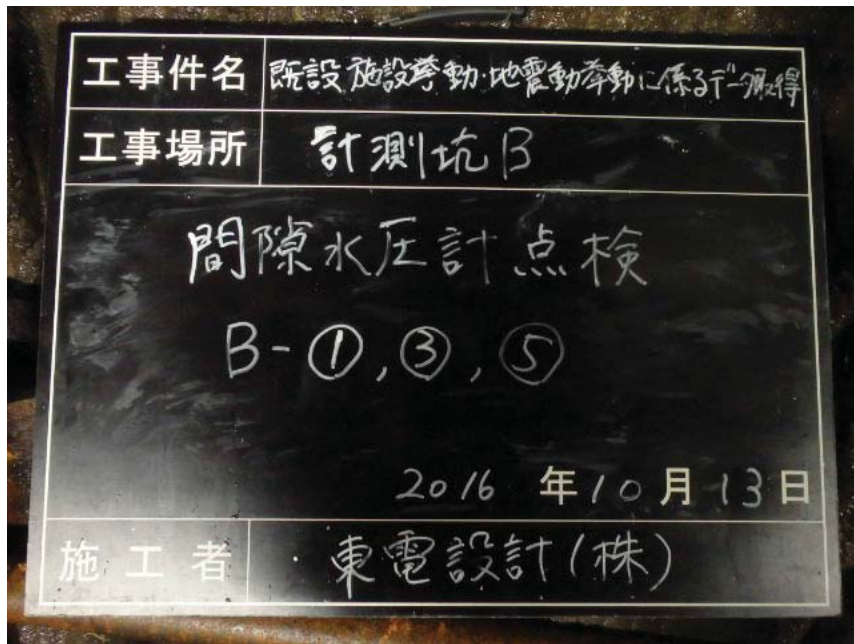 工事件名 既設施設挙動・地震動挙動に係るデータ取得
工事場所 計測坑B
間隙水圧計点検
B-①,③,⑤
2016 年10月13日
施工者 東電設計(株)